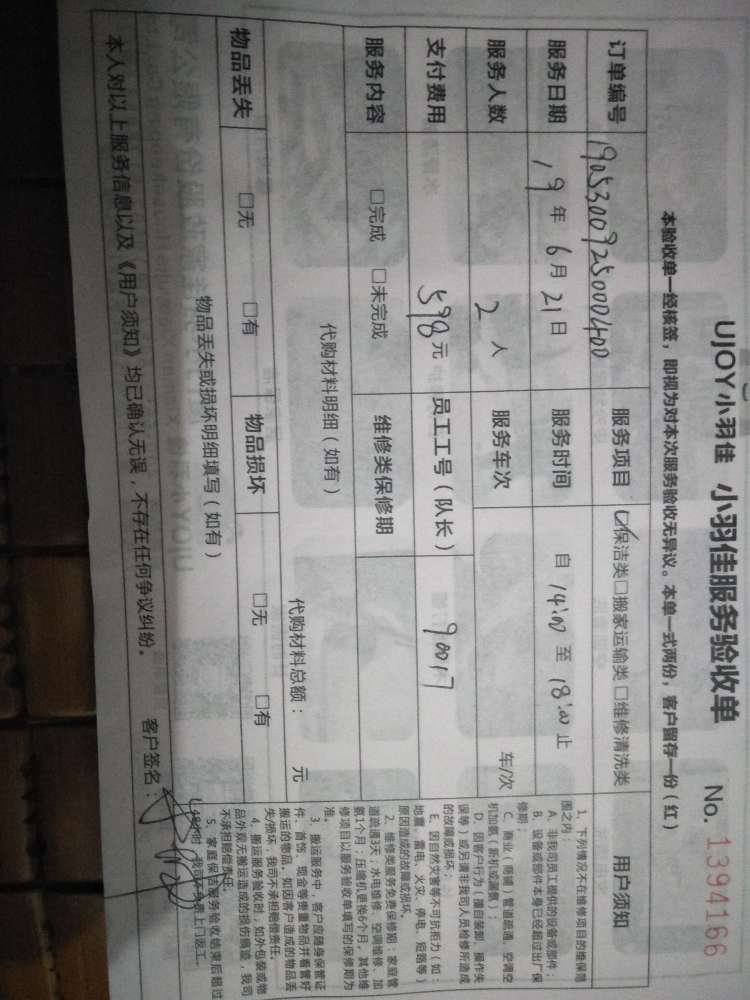 UJOY小羽佳 小羽佳服务验收单 No. 1394166
本验收单一经核签，即视为对本次服务验收无异议。本单一式两份，客户留存一份（红）
订单编号 1905300925000400 服务项目 ☑保洁类□搬家运输类 □维修清洗类
服务日期 19 年 6 月 21 日 服务时间 自 14:00 至 18:00 止
服务人数 2 人 服务车次 车/次
支付费用 598 元 员工工号（队长） 90017
服务内容 □完成 □未完成 维修类保修期
代购材料明细（如有）
代购材料总额： 元
物品丢失 □无 □有 物品损坏 □无 □有
物品丢失或损坏明细填写（如有）
本人对以上服务信息以及《用户须知》均已确认无误，不存在任何争议纠纷。 客户签名：
用户须知
1、下列情况不在维修项目的维保范
围之内：
A、非我司员工提供的设备或部件；
B、设备或部件本身已经超过出厂保
修期；
C、商业（商铺）管道疏通、空调空
机加氨（新机或漏氨）；
D、因客户行为（擅自装卸、操作失
误等）或另请非我司人员检修所造成
的故障或损坏；
E、因自然灾害等不可抗拒力（如：
地震、雷电、火灾、停电、短路等）
原因造成的故障或损坏。
2、维修类服务免费保修期：家庭管
道疏通3天；水电维修、空调维修、加
氨1个月；压缩机更换6个月，其他维
修项目以服务验收单填写的保修期为
准。
3、搬运服务中，客户应随身保管证
件、首饰、现金等贵重物品并看管好
搬运的物品。如因客户造成的物品丢
失/损坏，我司不承担赔偿责任。
4、搬运服务验收时，如外包装或物
品外观无搬运造成的损伤痕迹，我司
不承担赔偿责任。
5、家庭保洁服务验收结束后超过